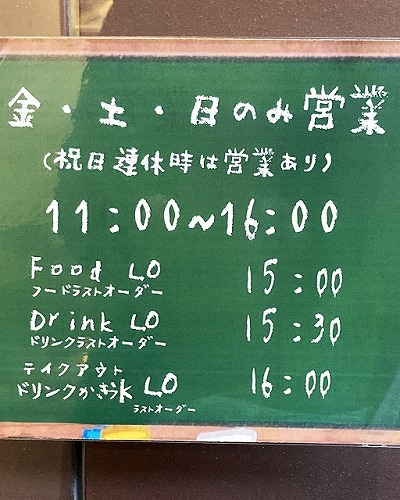 金・土・日のみ営業
(祝日連休時は営業あり)
11:00~16:00
Food LO 15:00
フードラストオーダー
Drink LO 15:30
ドリンクラストオーダー
テイクアウト
ドリンクかき氷 LO 16:00
ラストオーダー